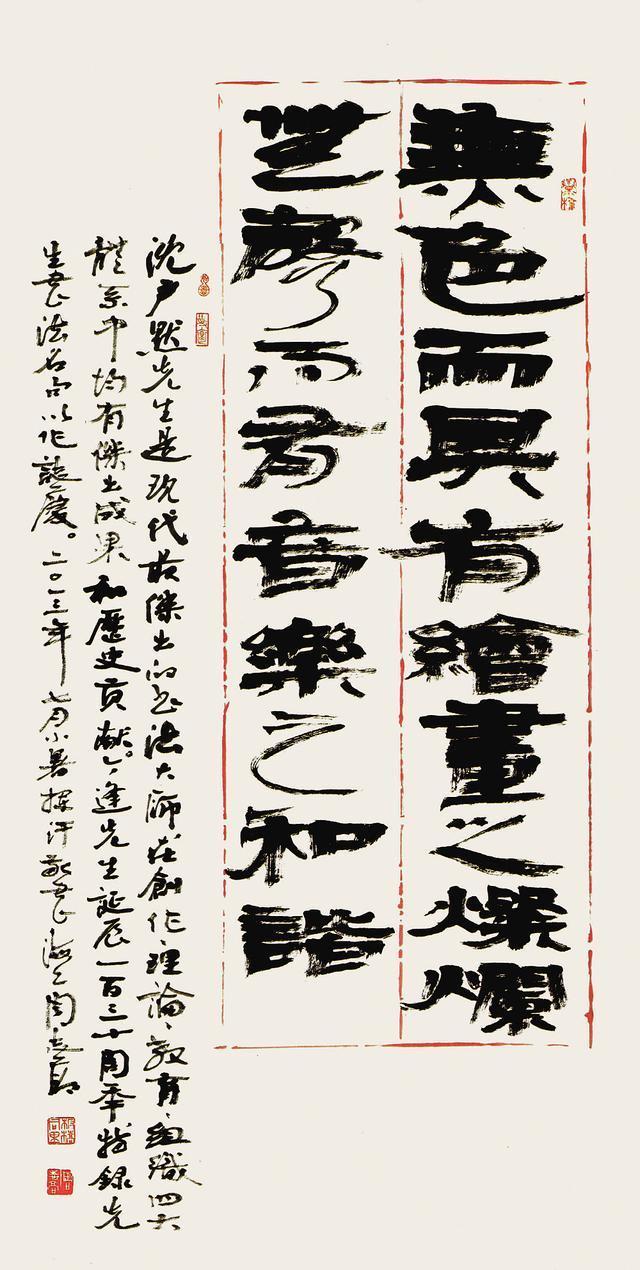 無色而具有繪畫之燦爛
無聲而有音樂之和諧
沈尹默先生是现代最傑出的书法大師在創作、理論、教育、組織四大
體系中均有傑出成果和歷史貢獻。今逢先生誕辰一百三十周年特錄先
生书法名句以作誕慶。二〇一三年七月小暑揮汗敬书海上周志高